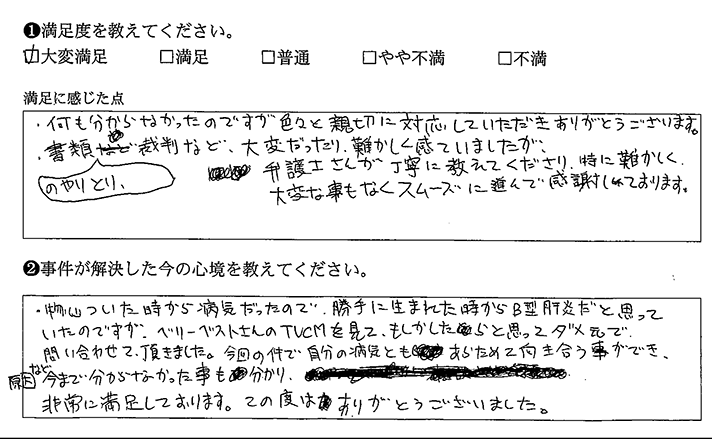 ❶満足度を教えてください。
☑大変満足 □満足 □普通 □やや不満 □不満
満足に感じた点
・何も分からなかったのですが色々と親切に対応していただきありがとうございます。
・書類のやりとり、裁判など、大変だったり、難かしく感ていましたが、
弁護士さんが丁寧に教えてくださり、特に難かしく、
大変な事もなくスムーズに進んで感謝しております。
❷事件が解決した今の心境を教えてください。
・物心ついた時から病気だったので、勝手に生まれた時からB型肝炎だと思って
いたのですが、ベリーベストさんのTVCMを見て、もしかしたらと思ってダメ元で、
問い合わせて頂きました。今回の件で自分の病気ともあらためて向き合う事ができ、
原因など今まで分からなかった事も分かり、
非常に満足しております。この度はありがとうございました。